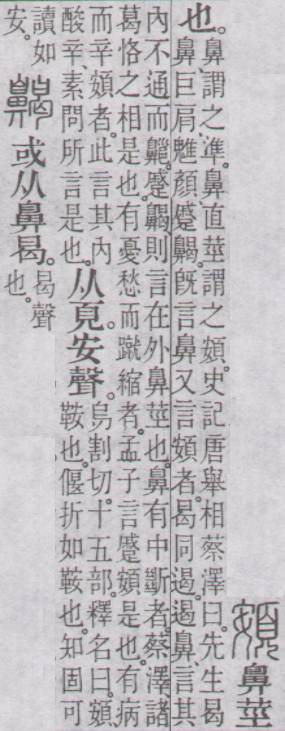 頞鼻莖
也。鼻謂之準。鼻直莖謂之頞。史記唐舉相蔡澤曰。先生曷
鼻、巨肩、魋顏、蹙齃。旣言鼻又言頞者。曷同遏。遏鼻、言其
內不通而齆。蹙齃則言在外鼻莖也。鼻有中斷者。蔡澤諸
葛恪之相是也。有憂愁而蹴縮者。孟子言蹙頞是也。有病
而辛頞者。此言其內
酸辛。素問所言是也。
从頁。安聲。
烏割切。十五部。釋名曰。頞、
鞍也。偃折如鞍也。知固可
讀如
安。
齃或从鼻曷。
曷聲
也。